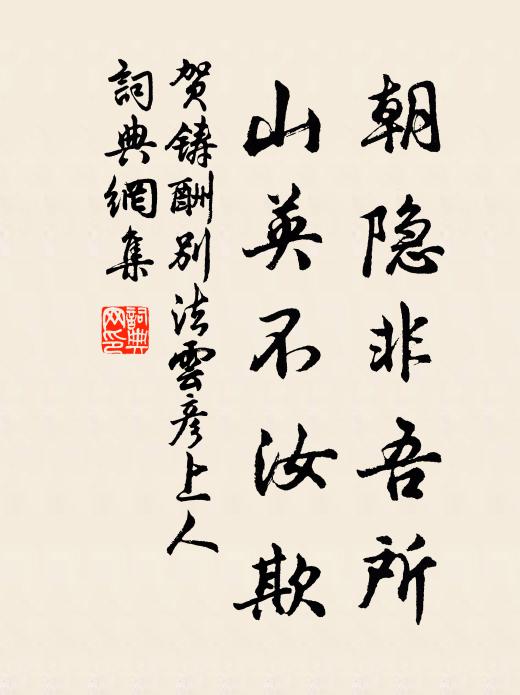 朝隐非吾所
山英不汝欺
贺鑄酬别法雲彦上人
詞典網集
詞典
网印